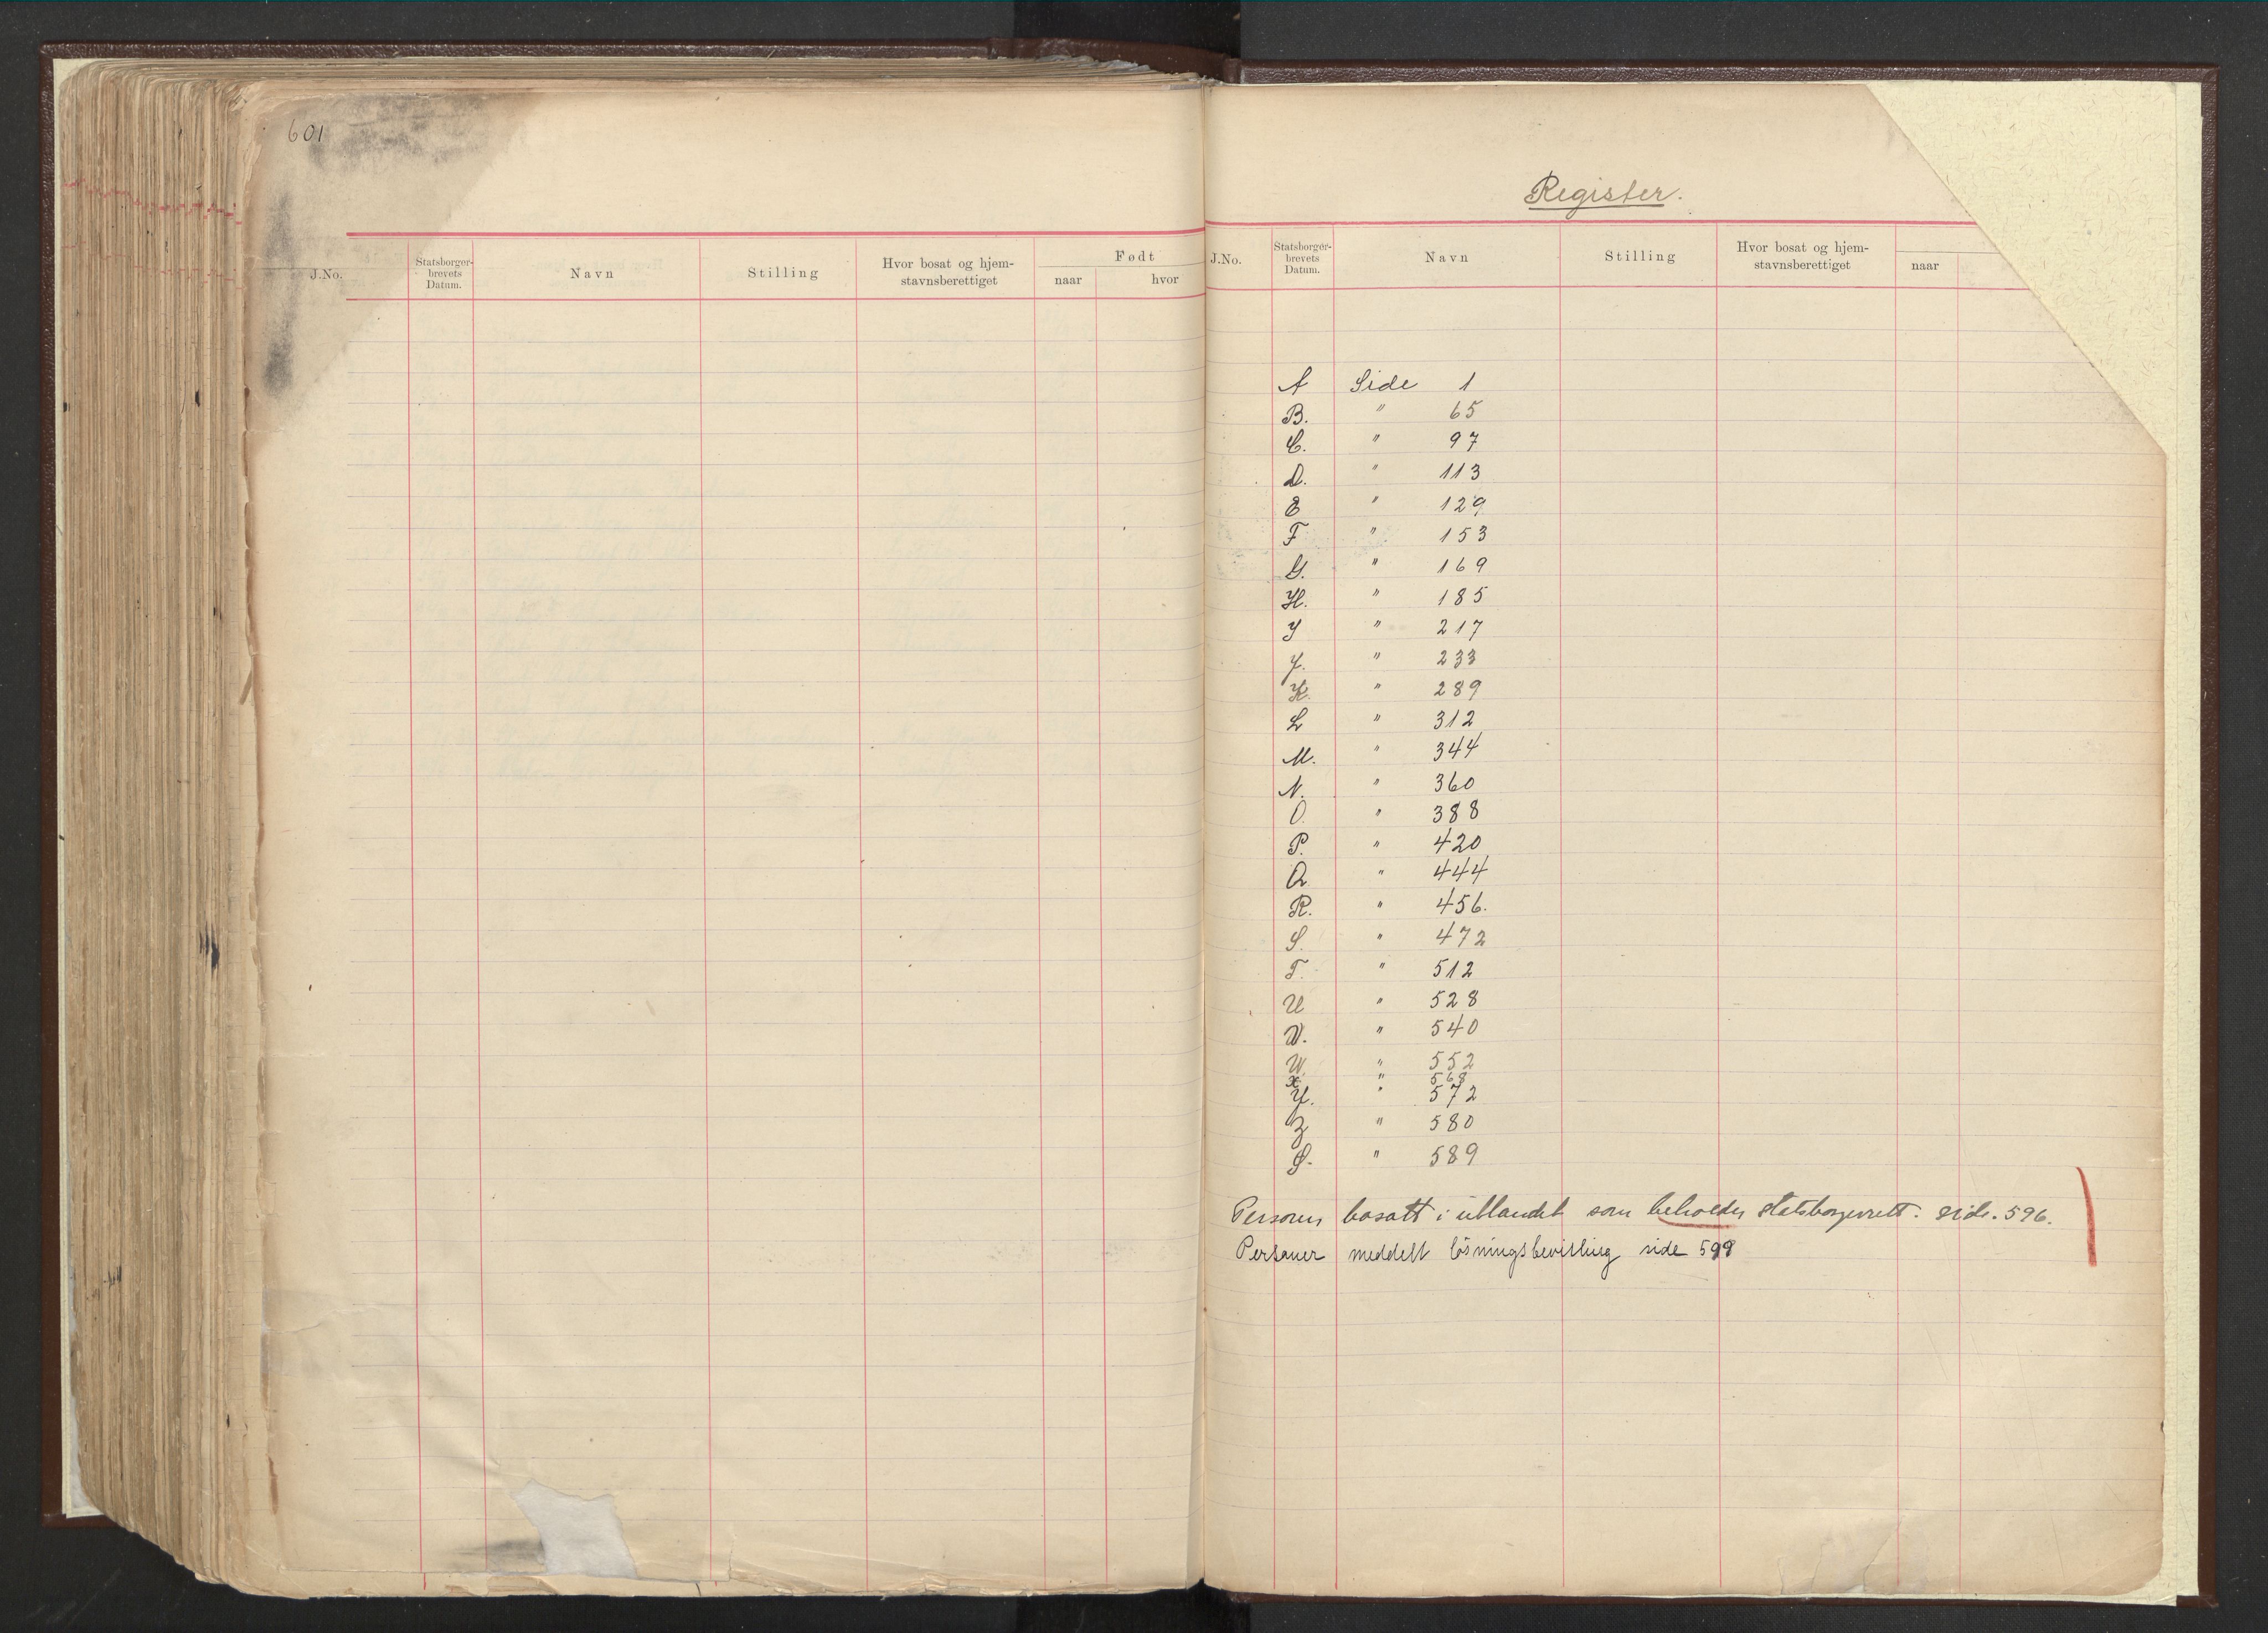 601
J.No.
Statsborger-
brevets
Datum.
Navn
Stilling
Hvor bosat og hjem-
stavnsberettiget
Født
naar
hvor
Register.
J.No.
Statsborger-
brevets
Datum.
Navn
Stilling
Hvor bosat og hjem-
stavnsberettiget
naar
A Side 1
B. " 65
C. " 97
D. " 113
E " 129
F " 153
G. " 169
H. " 185
I " 217
J. " 233
K. " 289
L " 312
M. " 344
N. " 360
O. " 388
P. " 420
Q " 444
R. " 456.
S. " 472
T. " 512
U " 528
V. " 540
W. " 552
X " 568
Y. " 572
Z " 580
" 589
Personer bosatt i utlandet som beholder statsborgerrett. side. 596.
Personer meddelt løsningsbevilling side 599